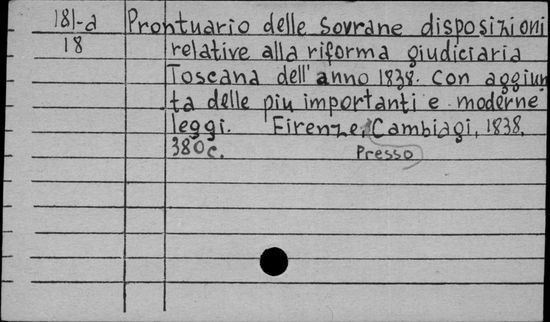 181-a Prontuario delle Sovrane disposizioni
18 relative alla riforma giudiciaria
Toscana dell'anno 1838. con aggiun
ta delle piu importanti e moderne
leggi. Firenze, Cambiagi, 1838.
380c. Presso